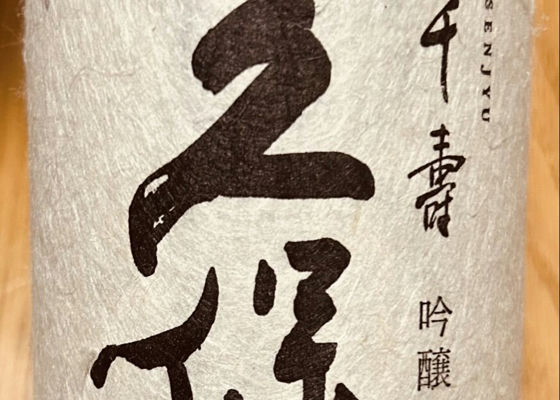 久保
千壽
SENJYU
吟醸